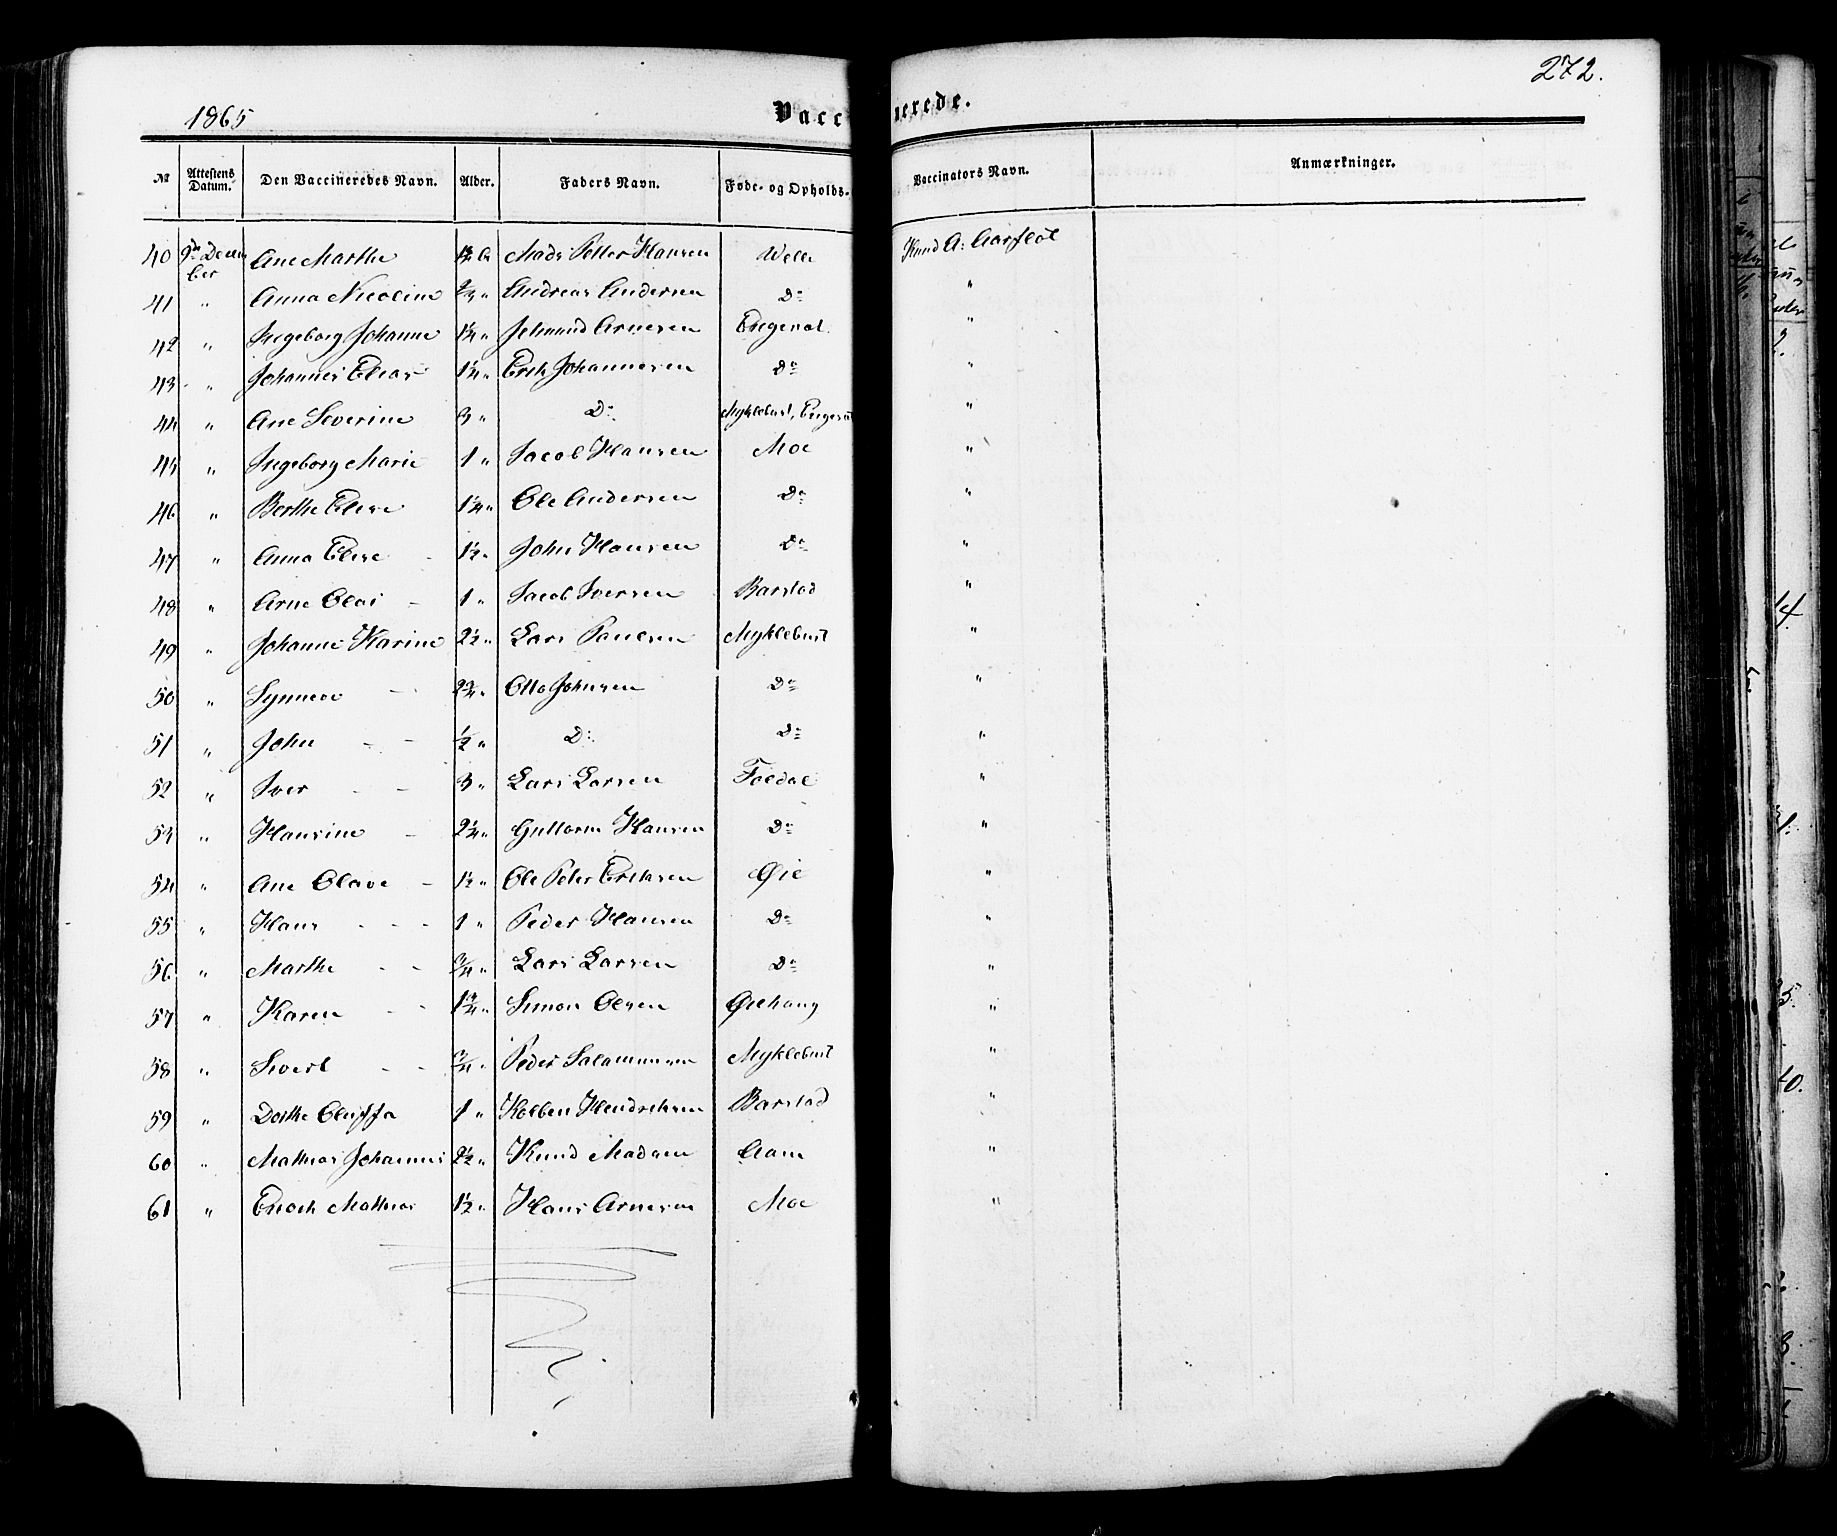 1865 Vaccinerede. 272.
№ Attestens Datum. Den Vaccineredes Navn. Alder. Faders Navn. Føde- og Opholds- Vaccinators Navn. Anmærkninger.
40 9de Decem Ane Marthe Mads Petter Hansen Welle Knud A: Aarflot
ber
41 " Anna Nicoline " Andreas Andersen Do "
42 " Ingeborg Johanne 1¼ " Jetmund Arnesen Engeset "
43 " Johannes Elias 1¼ " Erik Johannesen Do "
44 " Ane Severine 3 " Do Myklebust, Engeset "
45 " Ingeborg Marie 1 " Jacob Hansen Moe "
46 " Berthe Elise 1¼ " Ole Andersen Do "
47 " Anna Elise - 1½ " John Hansen Do "
48 " Arne Olai - 1 " Jacob Iversen Barstad "
49 " Johanne Karine 2½ " Lars Paulsen Myklebust "
50 " Synneve - - 2¾ " Otto Johnsen Do "
51 " John - - ½ " Do Do "
52 " Iver - - 3 " Lars Larsen Foldal "
53 " Hansine - 2¼ " Guttorm Hansen Do "
54 " Ane Olave - 1½ " Ole Peter Eriksen Øie "
55 " Hans - - - 1 " Peder Hansen Do "
56 " Marthe - - ¾ " Lars Larsen Do "
57 " Karen - - 1¾ " Simon Olsen Øiehaug "
58 " Sivert - - ¾ " Peder Salamonsen Myklebust "
59 " Dorthe Oluffa 1 " Kolben Hendriksen Barstad "
60 " Mathias Johannes 2½ " Knud Madsen Aam "
61 " Enoch Mathias 1½ " Hans Arnesen Moe "